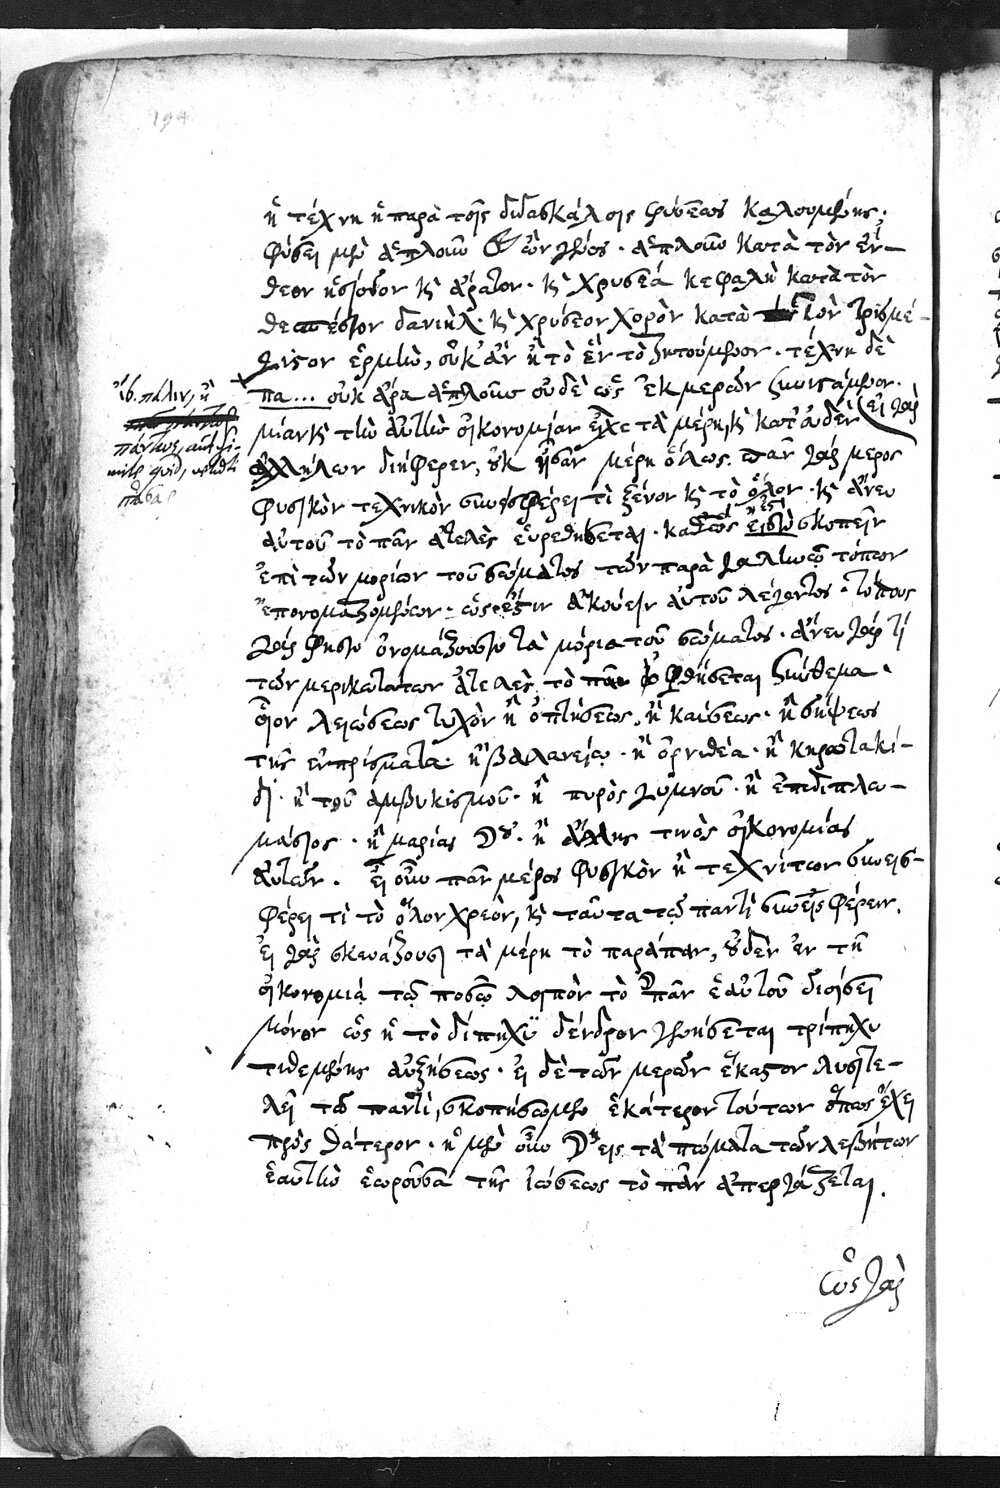 194
ἢ τέχνη ἢ παρὰ τοῖς διδασκάλοις φύσεως καλουμένης·
φύσει μὲν ἁπλοῦν γένος· ἁπλοῦν κατὰ τὸν ἔν-
θεον ἡσίοδον κ̀ ἄρατον· κ̀ χρυσέα κεφαλὴ κατὰ τὸν
θεσπέσιον δανιὴλ· κ̀ χρύσεον χορὸν κατὰ τὸν τρισμέ-
γιστον ἑρμῆν, οὐκ ἂν ᾖ τὸ ἓν τὸ ζητούμενον· τέχνη δὲ
πα... οὐκ ἄρα ἁπλοῦν οὐδὲ ὡς ἐκ μερῶν συνιστάμενον·
(εἰ γὰρ
μίαν κ̀ τὴν αὐτὴν οἰκονομίαν εἶχε τὰ μέρη, κ̀ κατ' οὐδὲν
ἀλλήλων διήφερεν, οὐκ ἦσαν μέρη ὅλως. πᾶν γὰρ μέρος
φυσικὸν τεχνικὸν συνεισφέρει τὶ ξένον κ̀ τὸ ὅλον· κ̀ ἄνευ
αὐτοῦ τὸ πᾶν ἀτελὲς εὑρεθήσεται· καθὼς ἐστὶ σκοπεῖν
ἐπὶ τῶν μορίων τοῦ σώματος τῶν παρὰ γαληνῷ τόπων
ἐπονομαζομένων· ὡς ἐστὶν ἀκούειν αὐτοῦ λέγοντος· τόπους
γὰρ φησὶν ὀνομάζουσι τὰ μόρια τοῦ σώματος· ἄνευ γάρ τι
τῶν μερικωτάτων ἀτελὲς τὸ πᾶν ὀφθήσεται σύνθεμα·
οἷον λειώσεως τυχὸν ἢ ὀπτήσεως, ἢ καύσεως· ἢ σήψεως
τῆς ἐν πρίσματα· ἢ βαλανείῳ· ἢ ὀρνιθέα· ἢ κηροτακί-
δι· ἢ τοῦ ἀμβυκισμοῦ· ἢ πυρὸς γυμνοῦ· ἢ ἐπιδιπλω-
μάσιος· ἢ μαρίας· ἢ ἄλλης τινὸς οἰκονομίας
αὐτῶν. εἰ οὖν πᾶν μέρος φυσικὸν ἢ τεχνίτων συνεισ-
φέρει τὶ τὸ ὅλον χρεὸν, κ̀ ταῦτα τῷ παντὶ συνεισφέρειν.
εἰ γὰρ σκευάζουσι τὰ μέρη τὸ παράπαν, οὐδὲν ἐν τῇ
οἰκονομίᾳ τῷ ποσῷ λοιπὸν τὸ πᾶν ἑαυτοῦ διοίσει
μόνον ὡς ἢ τὸ δίπηχυ δένδρον γενήσεται τρίπηχυ
τιθεμένης αὐξήσεως· εἰ δὲ τῶν μερῶν ἕκαστον λυσιτε-
λεῖ τῷ παντὶ, σκοπήσωμεν ἑκάτερον τούτων ὅπως ἔχει
πρὸς θάτερον· ἡ μὲν οὖν εἰς τὰ πώματα τῶν λεβήτων
ἑαυτὴν ἐωροῦσα τῆς ἰώσεως τὸ πᾶν ἀπεργάζεται.
ὡς γὰρ
ἴσ. πάλιν, ἢ
πάντως, aut si-
mile quid,